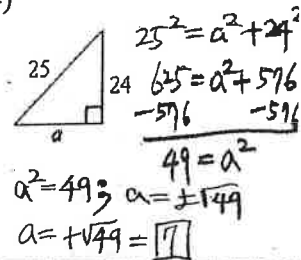 )
25
24
a
25² = a² + 24²
625 = a² + 576
-576 -576
49 = a²
a² = 49; a = ±√49
a = +√49 = 7